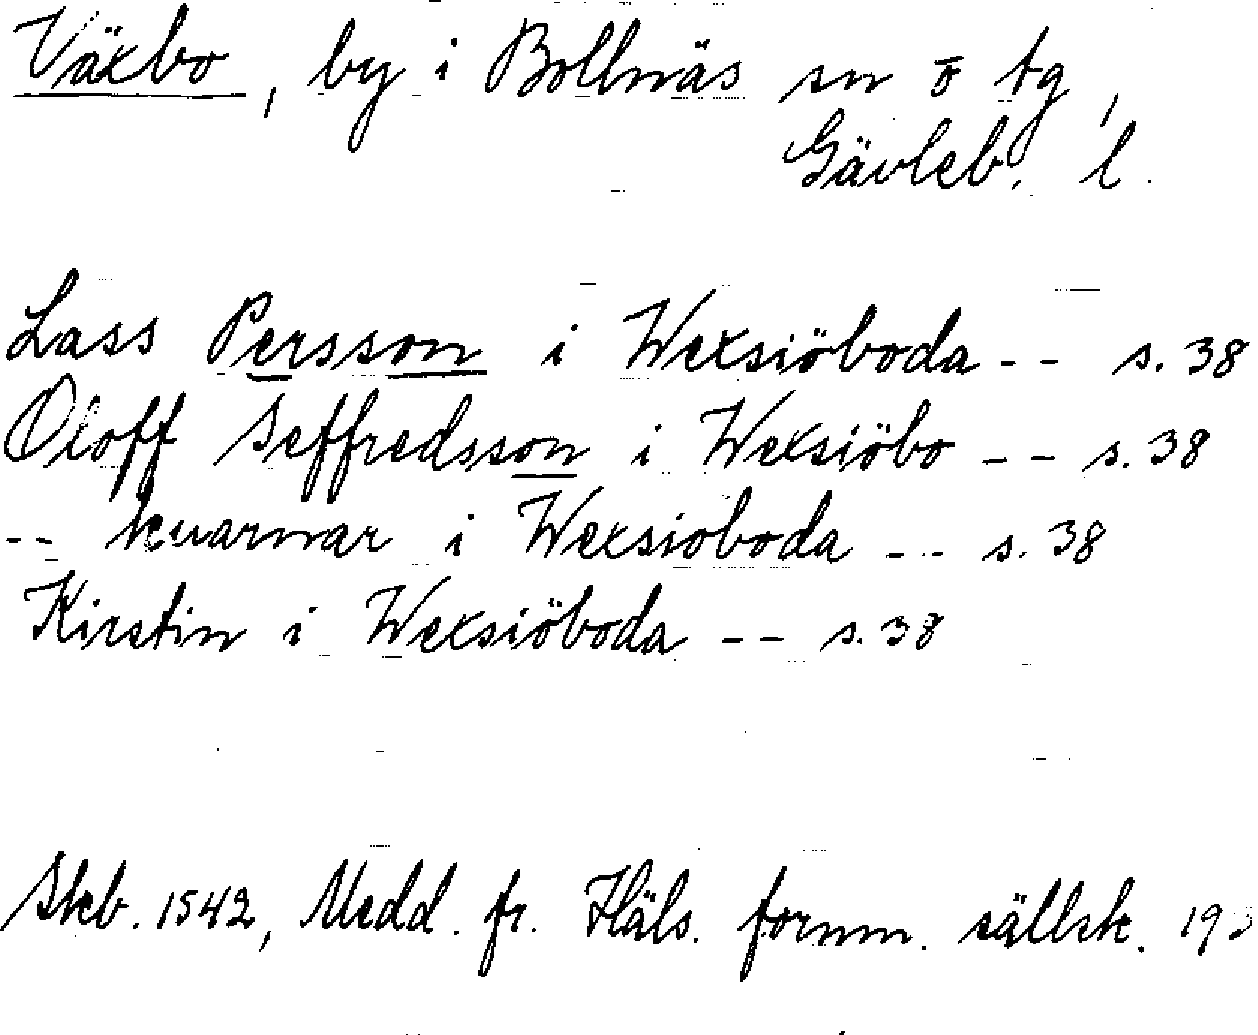 Växbo, by i Bollnäs sn o tg,
Gävleb. l.
Lass Persson i Wexsiöboda -- s. 38
Oloff Seffredsson i Wexsiöbo -- s. 38
-- kuarnar i Wexsioboda -- s. 38
Kirstin i Wexsiöboda -- s. 38
Skb. 1542, Medd. fr. Häls. fornm. sällsk.